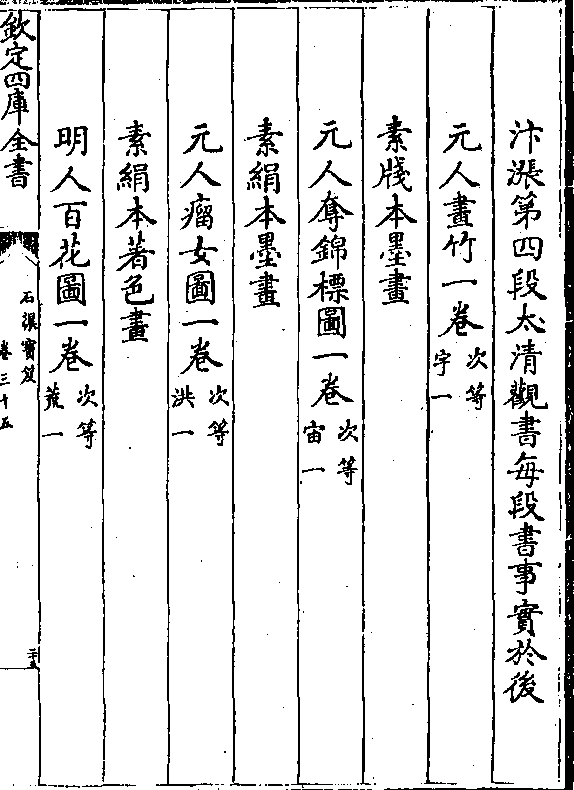 汴漲第四段太清觀書每段書事實於後
元人畫竹一卷次等宇一
素牋本墨畫
元人奪錦標圖一卷次等宙一
素絹本墨畫
元人瘤女圖一卷次等洪一
素絹本著色畫
明人百花圖一卷次等荒一
欽定四庫全書
石渠寶笈
卷三十五